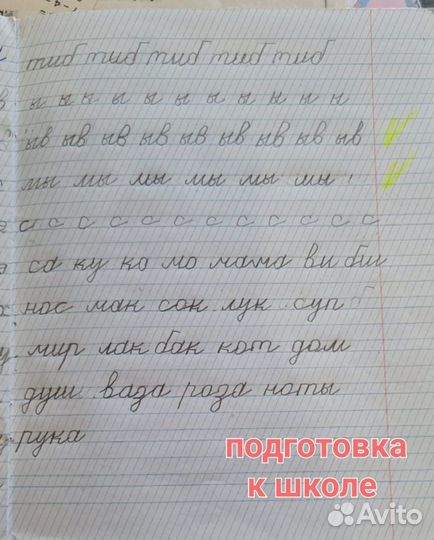 тиб тиб тиб тиб тиб
ы ы ы ы ы ы ы ы ы ы ы
ыв ыв ыв ыв ыв ыв ыв ыв ыв
мы мы мы мы мы мы
с с с с с с с с с с с с с
са ку ка мо мама ви би
нос мак сок лук суп
мир лак бак кот дом
душ ваза роза ноты
рука
подготовка
к школе
Avito